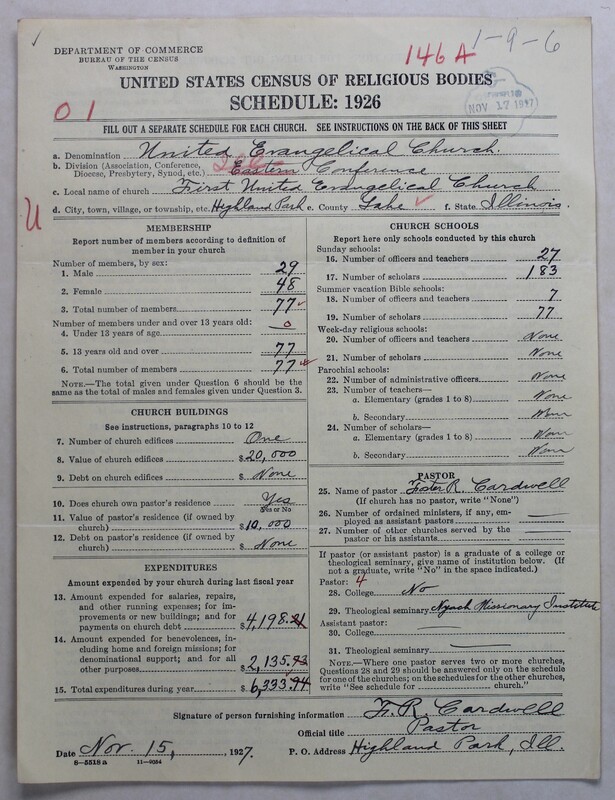 ✓
DEPARTMENT OF COMMERCE
BUREAU OF THE CENSUS
WASHINGTON
146A
1-9-6
UNITED STATES CENSUS OF RELIGIOUS BODIES
SCHEDULE: 1926
NOV 17 1927
01
FILL OUT A SEPARATE SCHEDULE FOR EACH CHURCH. SEE INSTRUCTIONS ON THE BACK OF THIS SHEET
a. Denomination United Evangelical Church.
b. Division (Association, Conference, Diocese, Presbytery, Synod, etc.) Eastern Conference
c. Local name of church First United Evangelical Church
d. City, town, village, or township, etc. Highland Park e. County Lake ✓ f. State Illinois.
U
MEMBERSHIP
Report number of members according to definition of
member in your church
Number of members, by sex:
1. Male 29
2. Female 48
3. Total number of members 77 ✓
Number of members under and over 13 years old:
4. Under 13 years of age 0
5. 13 years old and over 77
6. Total number of members 77 ✓
NOTE.—The total given under Question 6 should be the
same as the total of males and females given under Question 3.
CHURCH BUILDINGS
See instructions, paragraphs 10 to 12
7. Number of church edifices One
8. Value of church edifices $20,000
9. Debt on church edifices $ None
10. Does church own pastor's residence Yes
Yes or No
11. Value of pastor's residence (if owned by
church) $10,000
12. Debt on pastor's residence (if owned by
church) $ None
EXPENDITURES
Amount expended by your church during last fiscal year
13. Amount expended for salaries, repairs,
and other running expenses; for im-
provements or new buildings; and for
payments on church debt $4,198.21
14. Amount expended for benevolences, in-
cluding home and foreign missions; for
denominational support; and for all
other purposes $2,135.73
15. Total expenditures during year $6,333.94
CHURCH SCHOOLS
Report here only schools conducted by this church
Sunday schools:
16. Number of officers and teachers 27
17. Number of scholars 183
Summer vacation Bible schools:
18. Number of officers and teachers 7
19. Number of scholars 77
Week-day religious schools:
20. Number of officers and teachers None
21. Number of scholars None
Parochial schools:
22. Number of administrative officers None
23. Number of teachers—
a. Elementary (grades 1 to 8) None
b. Secondary None
24. Number of scholars—
a. Elementary (grades 1 to 8) None
b. Secondary None
PASTOR
25. Name of pastor Foster R. Cardwell
(If church has no pastor, write "None")
26. Number of ordained ministers, if any, em-
ployed as assistant pastors —
27. Number of other churches served by the
pastor or his assistants —
If pastor (or assistant pastor) is a graduate of a college or
theological seminary, give name of institution below. (If
not a graduate, write "No" in the space indicated.)
Pastor: 4
28. College No
29. Theological seminary Nyack Missionary Institute
Assistant pastor:
30. College —
31. Theological seminary —
NOTE.—Where one pastor serves two or more churches,
Questions 28 and 29 should be answered only on the schedule
for one of the churches; on the schedules for the other churches,
write "See schedule for ........ church."
Signature of person furnishing information F. R. Cardwell
Official title Pastor
Date Nov. 15, , 1927. P. O. Address Highland Park, Ill.
8—5518 a